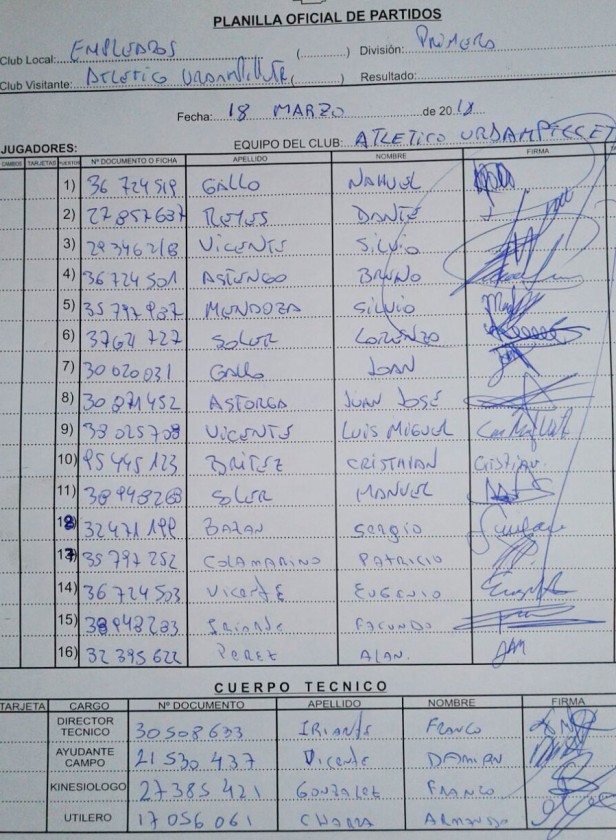 PLANILLA OFICIAL DE PARTIDOS
Club Local: EMPLEADOS (............) División: PRIMERA
Club Visitante: ATLETICO URDAMPILLETA (............) Resultado:
Fecha: 18 MARZO de 2018
JUGADORES: EQUIPO DEL CLUB: ATLETICO URDAMPILLET
CAMBIOS TARJETAS PUESTOS Nº DOCUMENTO O FICHA APELLIDO NOMBRE FIRMA
1) 36 724 519 GALLO NAHUEL
2) 27 857 637 REYES DANTE
3) 29346218 VICENTE SILVIO
4) 36 724 501 ASTENGO BRUNO
5) 35 797 937 MENDOZA SILVIO
6) 3764 727 SOLER LORENZO
7) 30 020 031 GALLO JOAN
8) 30 871 452 ASTORGA JUAN JOSÉ
9) 38 025 708 VICENTE LUIS MIGUEL
10) 95 445 123 BRITEZ CRISTHIAN Cristian
11) 38 948 268 SOLER MANUEL
18) 32 471 199 BAZAN Sergio
17) 35 797 252 COLAMARINO PATRICIO
14) 36 724 503 Vicente EUGENIO
15) 38 948 283 IRIARTE FACUNDO
16) 32 395 622 PEREZ ALAN.
CUERPO TECNICO
TARJETA CARGO Nº DOCUMENTO APELLIDO NOMBRE FIRMA
DIRECTOR TECNICO 30 508 633 IRIARTE FRANCO
AYUDANTE CAMPO 21 530 437 Vicente DAMIAN
KINESIOLOGO 27 385 421 GONZALEZ FRANCO
UTILERO 17 056 061 ARMANDO